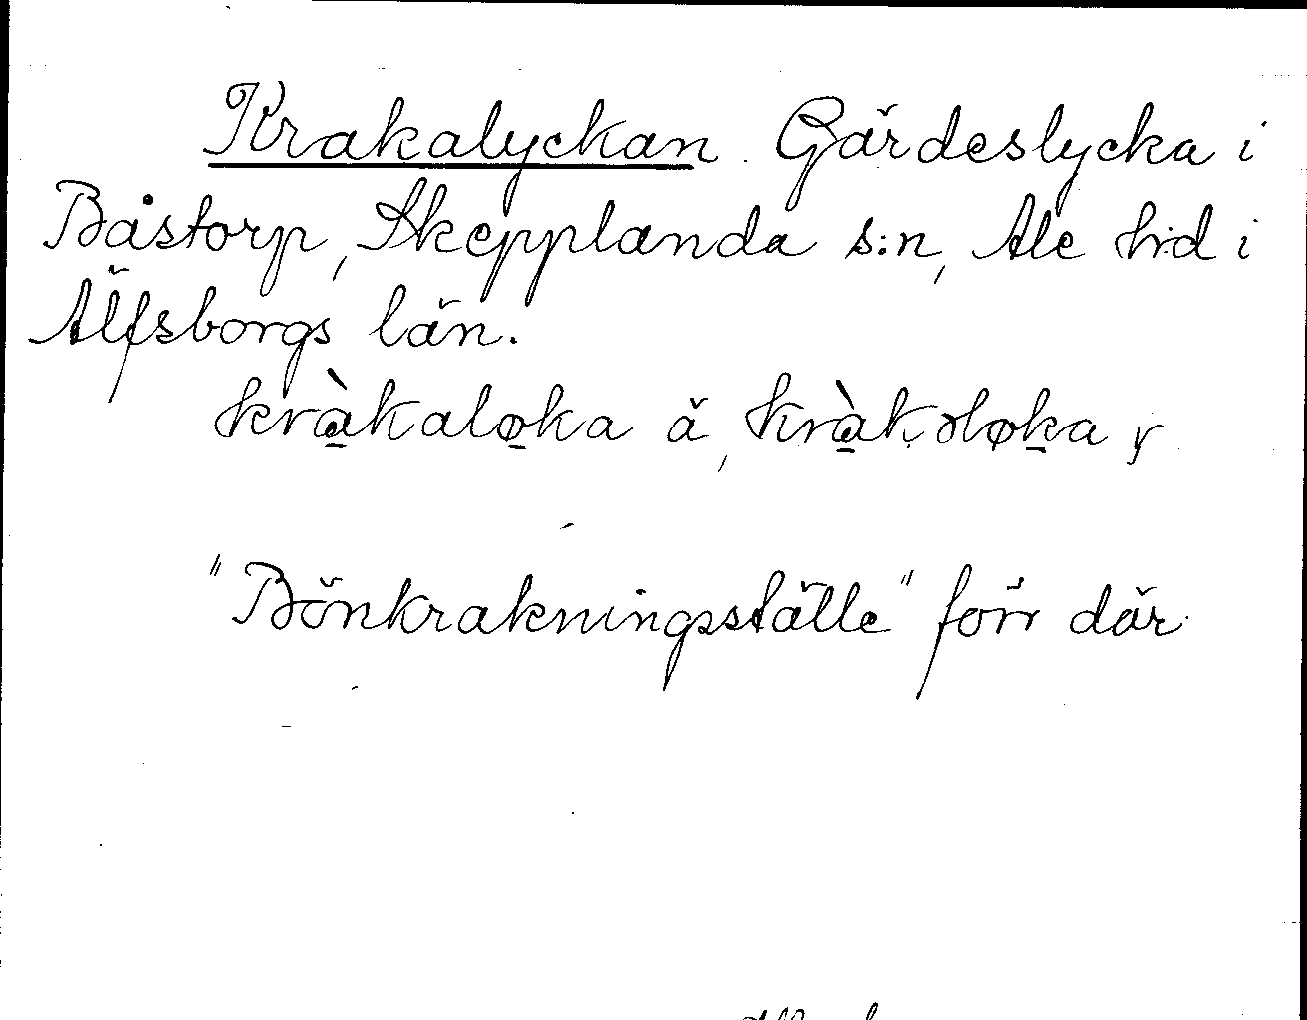 Krakalyckan. Gärdeslycka i
Båstorp, Skepplanda s:n, Ale hd i
Älfsborgs län.
kràkaløka ä, kràkəløka y
"Bönkrakningsställe" förr där